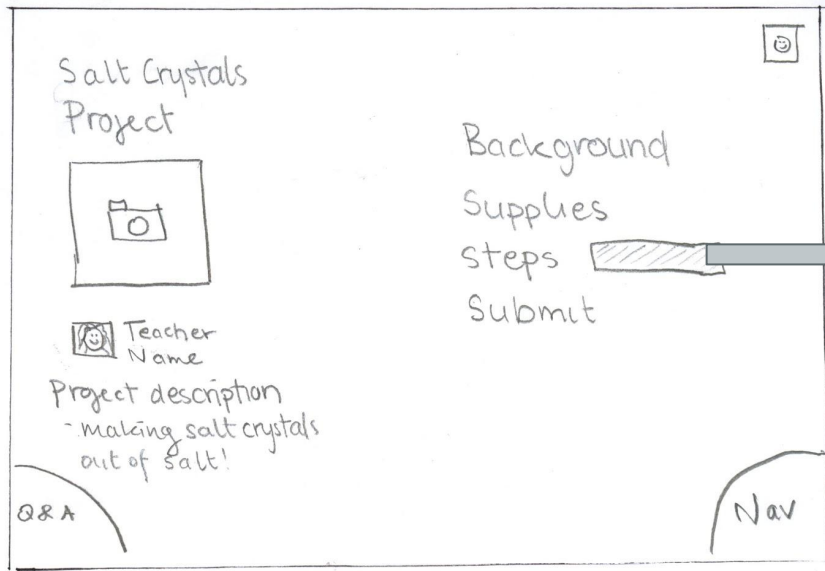 Salt Crystals
Project
Teacher
Name
Project description
- making salt crystals
out of salt!
Q & A
Background
Supplies
steps
Submit
Nav